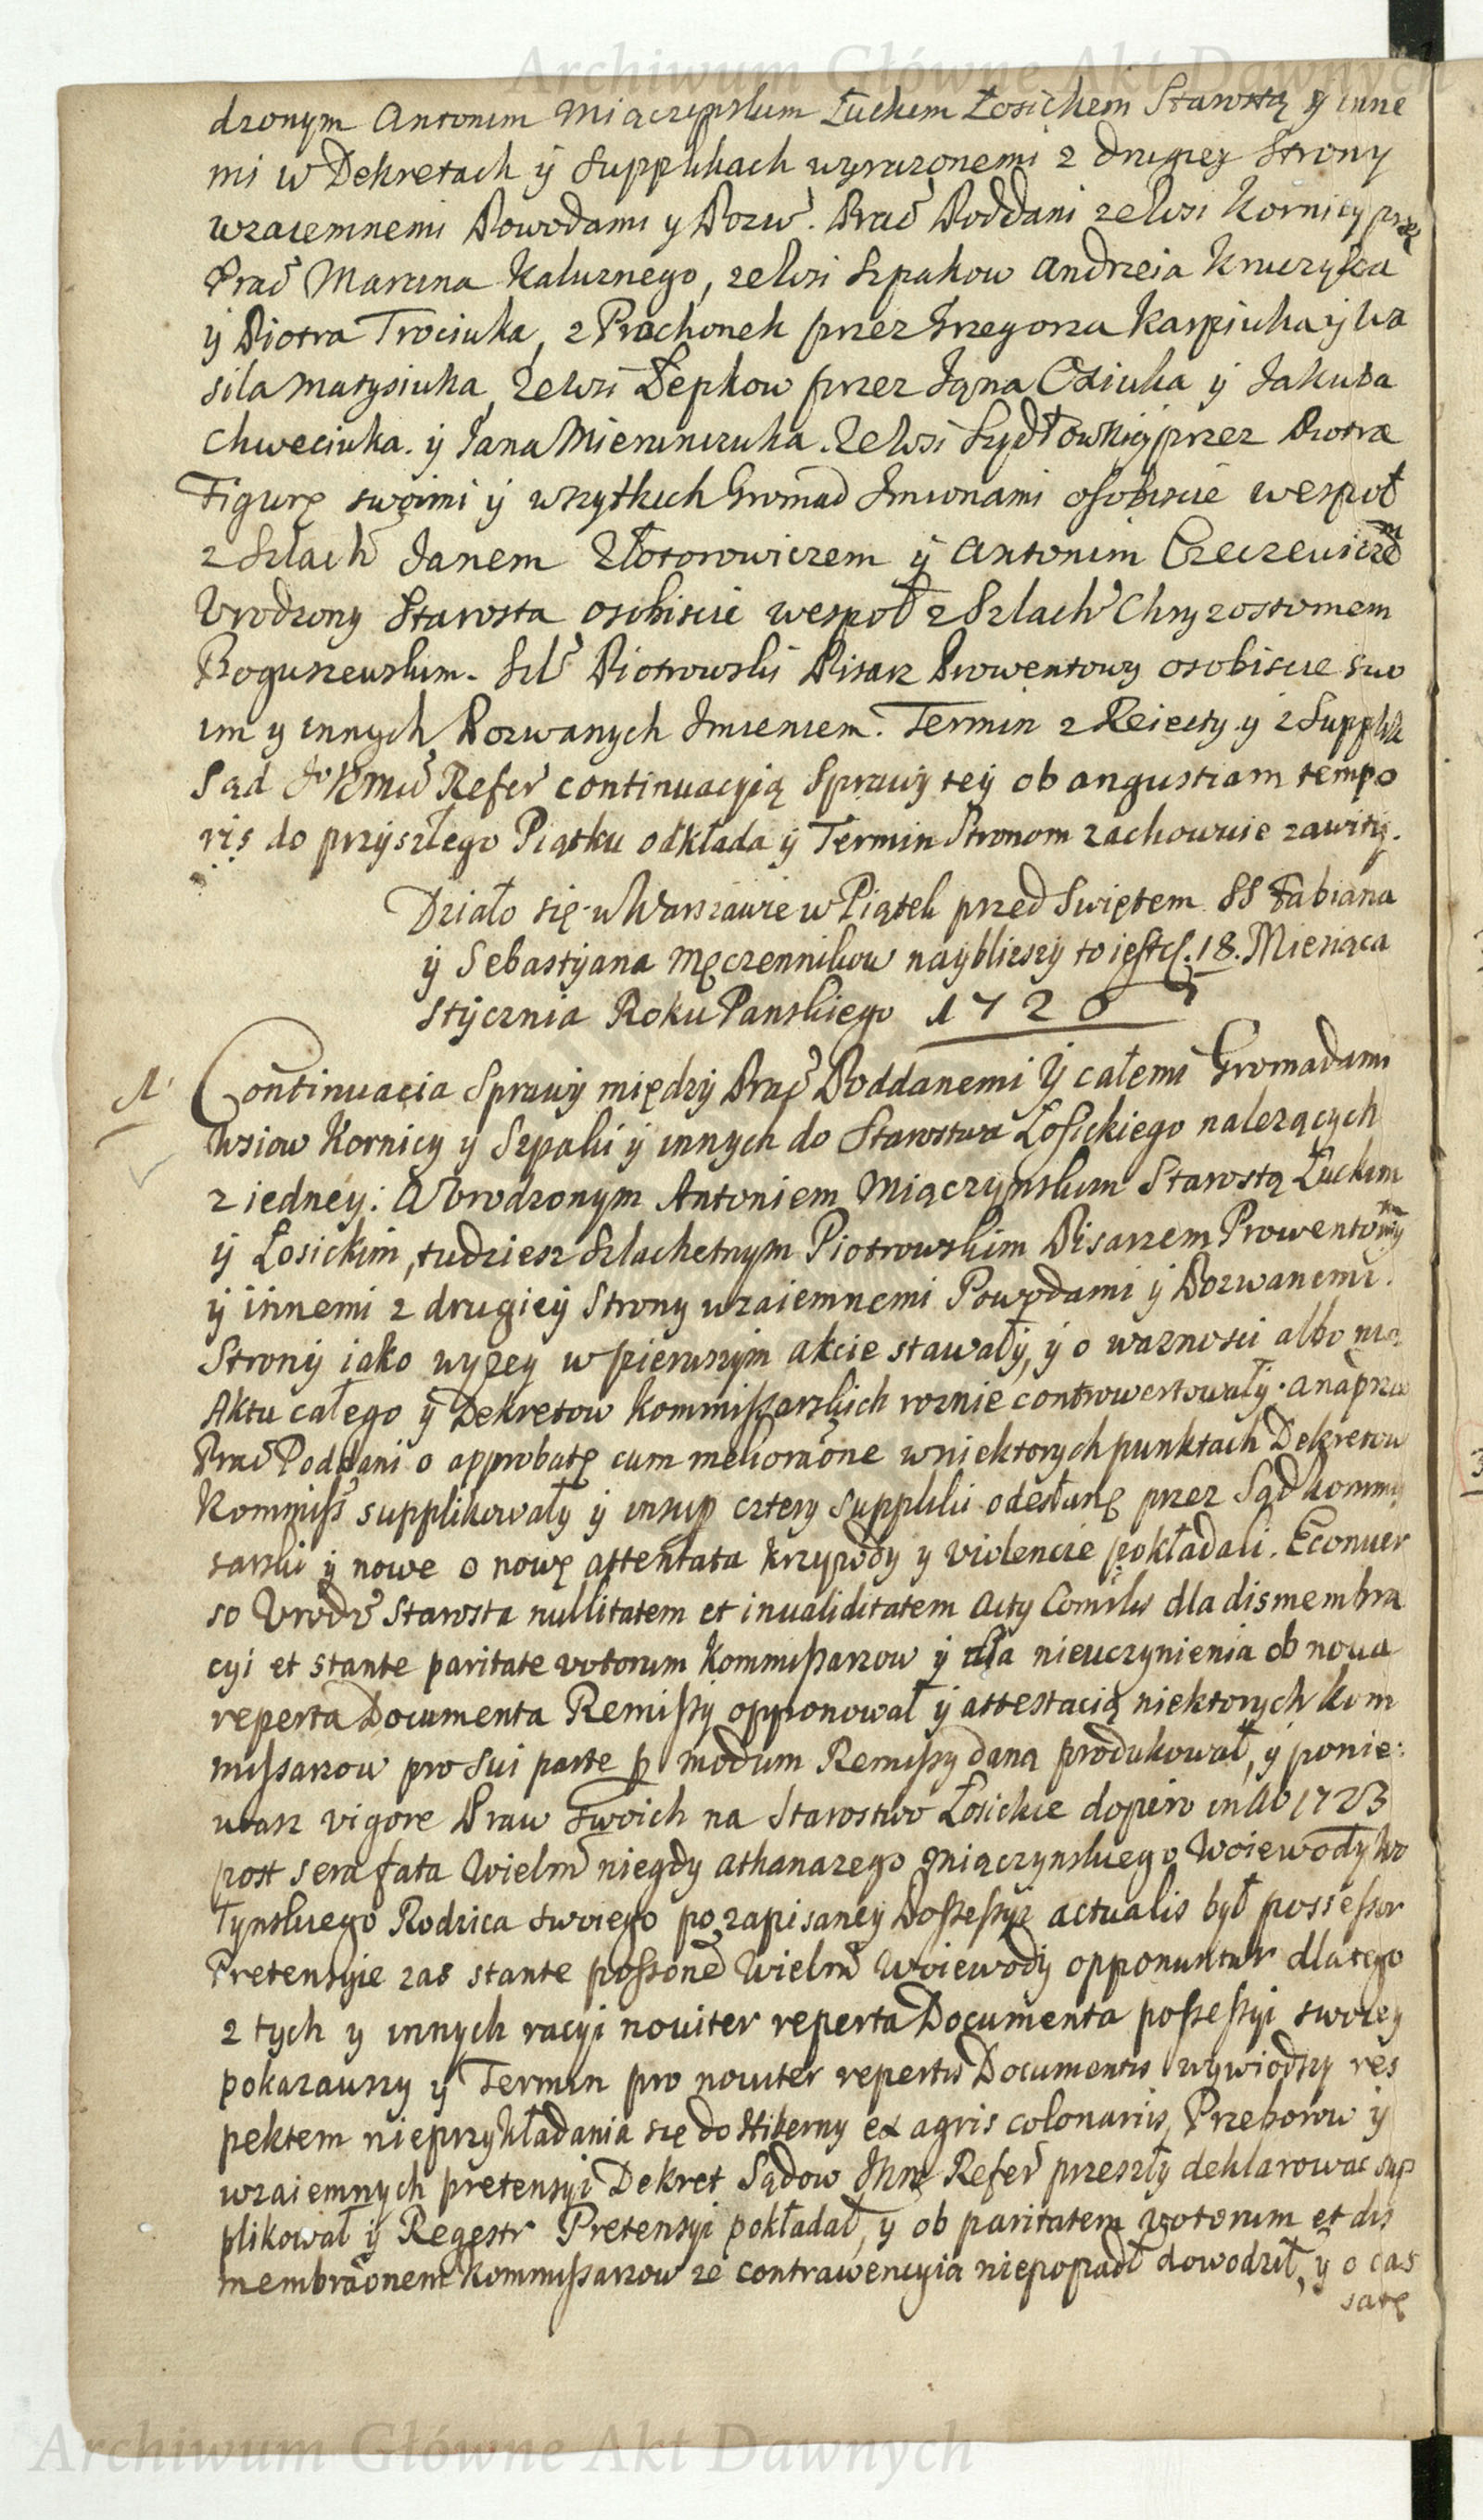 Archiwum Główne Akt Dawnych
dzonym Antonim Miączynskim Łuckim Łosickim Starostą y inne
mi w Dekretach ÿ Supplikach wyrazonemi z drugiey Strony
wzaiemnemi Powodami y Pozw. Prac Poddani zewsi Kornicy prze
Prac Marcina Kaluznego, zewsi Szpakow Andrzeia Kruczyka
ÿ Piotra Trociuka, z Prochonek przez Grzegorza Karpiuka ÿ Wa
sila Matysiuka, zewsi Depkow przez Jana Osiuka ÿ Jakuba
Chweciuka. ÿ Jana Mierunczuka. zewsi Szydłowki przez Piotra
Figurę swoimi ÿ wszytkich Gromad Imionami osobiscie wespoł
z Szlach Janem Złotorowiczem ÿ Antonim Czeczewicze
Urodzony Starosta osobiscie wespoł z Szlach Chryzostomem
Boguszewskim. Szl Piotrowski Pisarz Prowentowy osobiscie swo
im y innych Pozwanych Imieniem. Termin z Reiectÿ y z Supplik
Sąd Refer continuacyią Sprawÿ teÿ ob angustiam tempo
ris do przÿszłego Piątku odkłada ÿ Termin Stronom zachowuie zawitÿ.
Działo się w Warszawie w Piątek przed Swiętem SS Fabiana
ÿ Sebastÿana Męczennikow nayblizszÿ to iest d. 18. Miesiąca
Stÿcznia Roku Panskiego 1726
Continuacia Sprawÿ międzÿ Prac Poddanemi ÿ całemi Gromadami
Wsiow Kornicy y Szpaki ÿ innych do Starostwa Łosickiego nalezących
z iedneÿ: A Urodzonym Antoniem Miączynskim Starostą Łuckim
ÿ Łosickim, tudziesz Szlachetnym Piotrowskim Pisarzem Prowentowÿ
ÿ innemi z drugieÿ Strony wzaiemnemi Powodami ÿ Pozwanemi.
Stronÿ iako wyzeÿ w pierwszÿm akcie stawałÿ, ÿ o waznosci albo nie
Aktu całego ÿ Dekretow Kommissarskich roznie controwertowałÿ. a naprzod
Prac Poddani o approbatę cum melioraone w niektorych punktach Dekretow
Kommiss supplikowały ÿ insup cztery Suppliki odesłane przez Sąd kommis
sarski ÿ nowe o nowe attentata krzywdÿ y violencie pokładali. Econver
so Urodz Starosta nullitatem et inualiditatem Acty Comrlis dla dismembra
cyi et stante paritate votorum Kommissarzow ÿ dla nieuczynienia ob noua
reperta Documenta Remissÿ opponował ÿ attestacią niektorych kom
missarzow pro sui parte p modum Remissy daną produkował, ÿ ponie:
wasz vigore Praw swoich na Starostwo Łosickie dopiro in Ao 1723
post sera fata Wielm niegdy Athanazego Miączynskiego Woiewodÿ Wo
łynskiego Rodzica swoiego po zapisaneÿ Possessyi actualis był possessor
Pretensyie zas stante possone Wielm Woiewodÿ opponuntur dlatego
z tych y innych racyi nouiter reperta Documenta possessyi swoiey
pokazawszy ÿ Termin pro nouiter repertis Documentis wywiodszy res
pektem nieprzykładania się do Hiberny ex agris colonariis, Przeborow ÿ
wzaiemnych pretensyi Dekret Sądow Jhm Refer przeszłÿ deklarowac sup
plikował ÿ Regestr Pretensyi pokładał, ÿ ob paritatem votorum et dis
membraonem Kommissarzow ze contrawencyia niepopadł dowodził, ÿ o cas
satę
Archiwum Główne Akt Dawnych